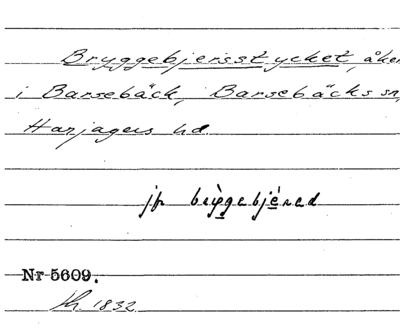 Bryggebjersstycket, åker
i Barsebäck, Barsebäcks sn,
Harjagers hd.
jfr
Nr 5609.
1832